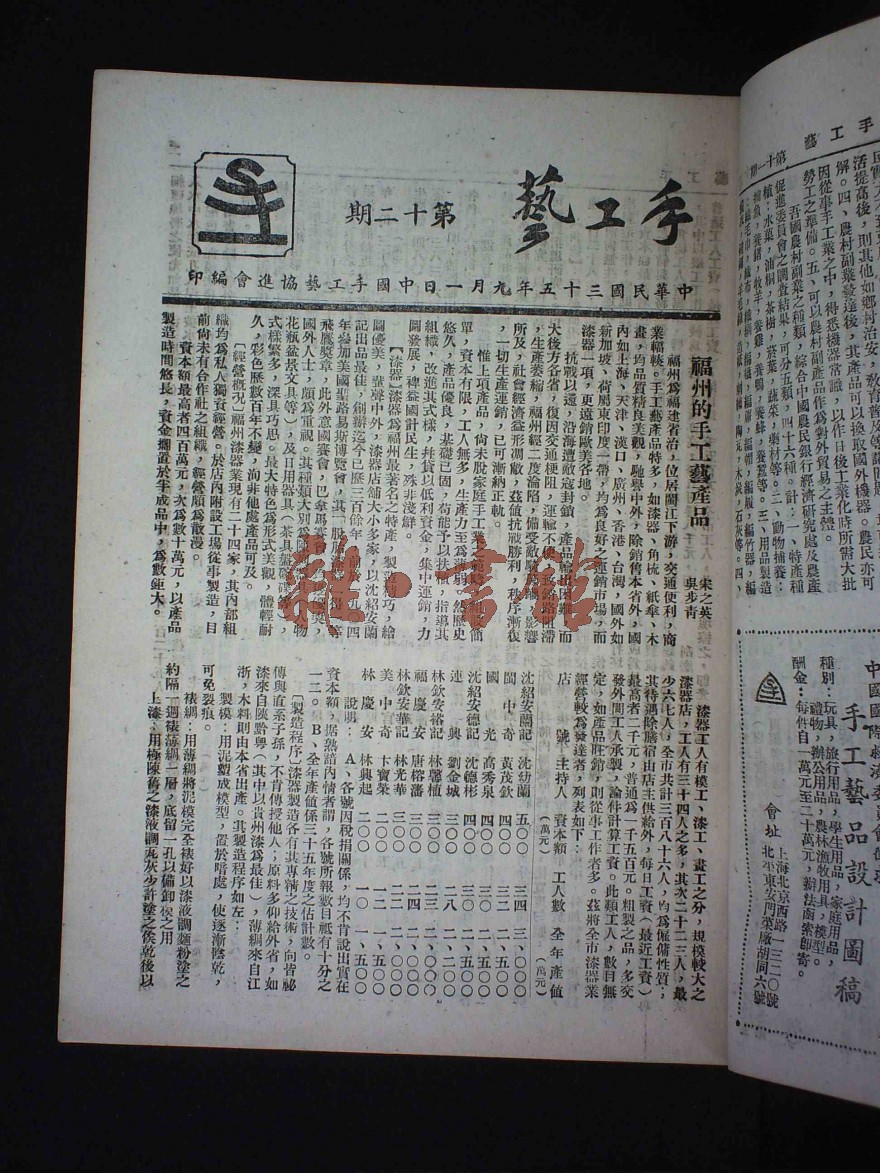 手工藝
第十二期
中華民國三十五年九月一日中國手工藝協進會編印
福州的手工藝產品
宋之英
吳步青
福州為福建省治，位居閩江下游，交通便利，商
業輻輳。手工藝產品特多，如漆器、角梳、紙傘、木
畫，均品質精良美觀，馳譽中外，除銷售本省外，國
內如上海、天津、漢口、廣州、香港、台灣，國外如
新加坡、荷屬東印度一帶，均為良好之運銷市場，而
漆器一項，更遠銷歐美各地。
抗戰以還，沿海遭敵寇封鎖，產品輸出困難，而
大後方各省，復因交通梗阻，運輸不便，致銷路阻滯
，生產萎縮，福州經二度淪陷，備受敵騎
所及，社會經濟益形凋敝，茲値抗戰勝利，秩序漸復
，一切生產運銷，已可漸納正軌。
惟上項產品，尙未脫家庭手工業之
單，資本有限，工人無多，生產力至為薄弱。然歷史
悠久，產品優良，基礎已固，苟能予以扶
組織，改進其式樣，幷貸以低利資金，集中運銷，力
圖發展，裨益國計民生，殊非淺鮮。
【漆器】漆器為福州最著名之特產，製造精巧，繪
圖優美，蜚聲中外，漆器店舖大小多家，以沈紹安蘭
記出品最佳，創辦迄今已歷三百餘年
年參加美國聖路易斯博覽會，其「脫胎
飛鷹獎章，此外意國賽會，巴拿馬賽會
國外人士，頗為重視。其種類大別為陳
花瓶盆景文具等），及日用器具（茶具盤盒碟
式樣繁多，深具巧思。最大特色為形式美觀，體輕耐
久，彩色歷數百年不變，洵非他處產品可及。
【經營概況】福州漆器業現有二十四家，其內部組
織均為私人獨資經營。於店內附設工場從事製造，目
前尙未有合作社之組織，經營頗為散漫。
資本額最高者四百萬元，次為數十萬元，以產品
製造時間悠長，資金擱置於半成品中，為數鉅大。
漆器工人有模工、漆工、畫工之分，規模較大之
漆器店，工人有三十四人之多，其次二十二三人，最
少六七人，全市共計三百八十六人，均為僱傭性質；
其待遇除膳宿由店主供給外，每日工資（最近工資）
最高者二千元，普通為一千五百元。粗製之品，多交
發外間工人承製，論件計算工資。此類工人，數目無
定，如產品旺銷，則從事工作者多。茲將全市漆器業
經營較為發達者，列表如下：
店號 主持人 資本額（萬元） 工人數 全年產値（萬元）
沈紹安蘭記 沈幼蘭 五〇〇 三四 三、〇〇〇
閩中奇 黃茂欽 四〇〇 二二 二、五〇〇
國光 高秀泉 四〇〇
沈紹安德記 沈德彬 四〇〇
連興 劉金城 三〇〇 二八 二、二〇〇
林欽安裕記 林馨植 三〇〇 二三 二、〇〇〇
福慶安 唐榕藩 三〇〇 二四 二、〇〇〇
林欽安華記 林光華 三〇〇 二二 二、〇〇〇
美中奇 卞寶榮 二〇〇 一二 一、五〇〇
林慶安 林興起 二〇〇 一〇 一、五〇〇
說明： A、各號因稅捐關係，均不肯說出實在
資本額，據熟諳內情者謂，各號所報數目祇有十分之
一二。 B、全年產値係三十五年度之估計數。
【製造程序】漆器製造各有其專精之技術，向皆祕
傳與直系子孫，不肯傳授他人；原料多仰給外省，如
漆來自陝黔粵（其中以貴州漆為最佳），薄綢來自江
浙，木料則由本省出產。其製造程序如左：
製模：用泥塑成模型，置於暗處，使逐漸陰乾，
可免裂痕。
裱綢：用薄綢將泥模完全裱好以漆液調麵粉塗之
約隔一週裱薄綢一層，底留一孔以備卸模之用
上漆：用極陳舊之漆液調瓦灰少許塗之俟乾後以
手工藝 第十一期
活提高後，則其他如鄉村治安，敎育普及等
解。四、農村副業發達後，其產品可以換取國外機器。農民亦可
因從事手工業之中，得悉機器常識，以作日後工業化時所需大批
勞工之準備。五、可以農村副產品作為對外貿易之主體。
吾國農村副業之種類，綜合中國農民銀行經濟研究處及農產
促進委員會之調查結果，可分五類，四十六種。計：一、特產種
植：水菓，油桐，茶樹，菸葉，蔬菜，藥材等。二、動物飼養：
三、用品製造
手工藝品設計圖稿
種別：玩具，旅行用品，學生用品，家庭用品，
禮物，辦公用品，農林漁牧用具，模型。
酬金：每件自一萬元至二十萬元，辦法函索即寄。
會址
上海北京西路一三二〇號
北平東安門菜廠胡同六號
雜·書館